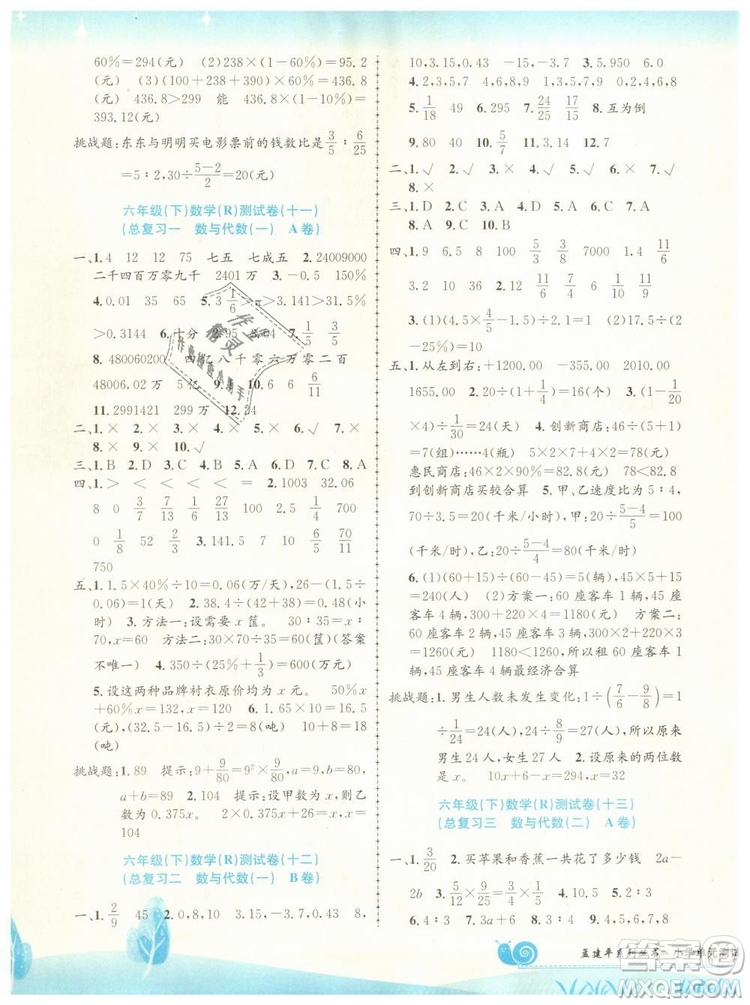 60%=294(元) (2)238×(1-60%)=95.2
(元) (3)(147+399)×(1-20%)=436.8
(元) 436.8>299 能 436.8×(1-10%)=
393.12(元)
挑战题:东东与明明买电影票前的钱数比是3/5∶6/25
=5∶2,30÷(5-2)/2=20(元)
六年级(下)数学(R)测试卷(十一)
(总复习一 数与代数(一) A卷)
一、1.4 12 12 75 七五 七成五 2.24009000
二千四百万零九千 2401万 3.-0.5 150%
4.0.01 35 65 5.3 1/6>π>3.141>31.3%
>0.3144 6.十分 95 94
8.480060200 四亿八千零六万零二百
48006.02万 5亿
11.2991421 299 12.24
二、1.× 2.× 3.× 4.× 5.× 6.√ 7.√
8.× 9.× 10.√
三、1.B 2.D 3.A 4.C 5.B 6.D 7.B 8.A
四、1.> < < < = > 2.1003 32.06
8 0 3/7 7/13 7 18 27 27 1/4
0 1/8 52 33 3.141.5 0 3/5 9 1/2
750
五、1.1.5×40%÷10=0.06(万/天),26×0.06-1.5=
0.06(万) 2.38.4÷(42+38)=0.48(小
时) 3.方法一:设需要x筐。 30∶35=x∶
70,x=60 方法二:30×70÷35=60(筐)(答案
不唯一) 4.350÷(25%+1/3)=600(万元)
5.设这两种品牌衬衣原价均为x元。 50%x
+60%x=132,x=120 6.1.65×10=16.5
(元),(32.5-16.5)÷2=8(吨) 10+8=18
(吨)
挑战题:1.89 提示:9+9/80=9²×9/80,b=80,a=9,
a+b=89 2.104 提示:设甲数为x,则乙
数为3x,x+3x=416,解得x=104,所以甲数为
104
六年级(下)数学(R)测试卷(十二)
(总复习二 数与代数(一) B卷)
一、1.2/9 45 2.0,3.1,0.43 10,0,3
10,3.15,0.43 -15,-3 3.5.95 6.0
4.2,3,5,7 4,6,8,9,10 2 4,6,8,10
5.1/18 49 6.300 7.24/25 17/25 8.互为倒
9.80 40 10.5/7
二、1.√ 2.× 3.√ 4.√ 5.√ 6.× 7.√
8.×
三、1.D 2.C 3.C 4.B 5.D 6.B 7.C
8.A
四、1.9 6.5 8 5/3 3/8 1 100 9.9
3.2 10 4/9 36 2.12 11/60 1/9 6
3.(1)(4×4/5-1.5)÷2=0.85 (2)17.2÷(5-
1)=4.3
五、1.从左到右:+1200.00 -355.00 2010.00
1655.00 2.20÷(1+1/4)=16(个) 3.(1/15
×4)÷1/30=8(天) 4.创新商店:46÷(5+1)
=7(组)……4(瓶) 5×2×7+4×2=78(元)
惠民商店:46×2×90%=82.8(元) 78<82.8
到创新商店买较合算 5.甲、乙速度比为5∶4,
70÷3.5=20(千米/小时),甲:20÷(5-4)/5=100
(千米/时),乙:20÷(5-4)/4=80(千米/时)
6.(1)(2)(45+15)÷(60-45)=5(辆),45×5+15
=240(人) (2)方案一:60座客车1辆,45座
客车4辆,300+220×4=1180(元) 方案二:
60座客车2辆,45座客车3辆,300×2+220×3
=1260(元) 1180元<1260元 60座客车1
辆,45座客车4辆最经济合算
挑战题:1.男生人数未发生变化:1÷(7/6-9/8)=
24(人),24÷8/9=27(人),所以原来
男生24人,女生27人 2.两个数都
是x。 10x+x=242,x=22
六年级(下)数学(R)测试卷(十三)
(总复习三 数与代数(二) A卷)
一、1.3/20 2.买苹果和香蕉一共花了多少钱 2a-
6.4∶3 7.6 8.5∶4 9.12 10.1∶3
孟建平系列丛书 小学单元测试